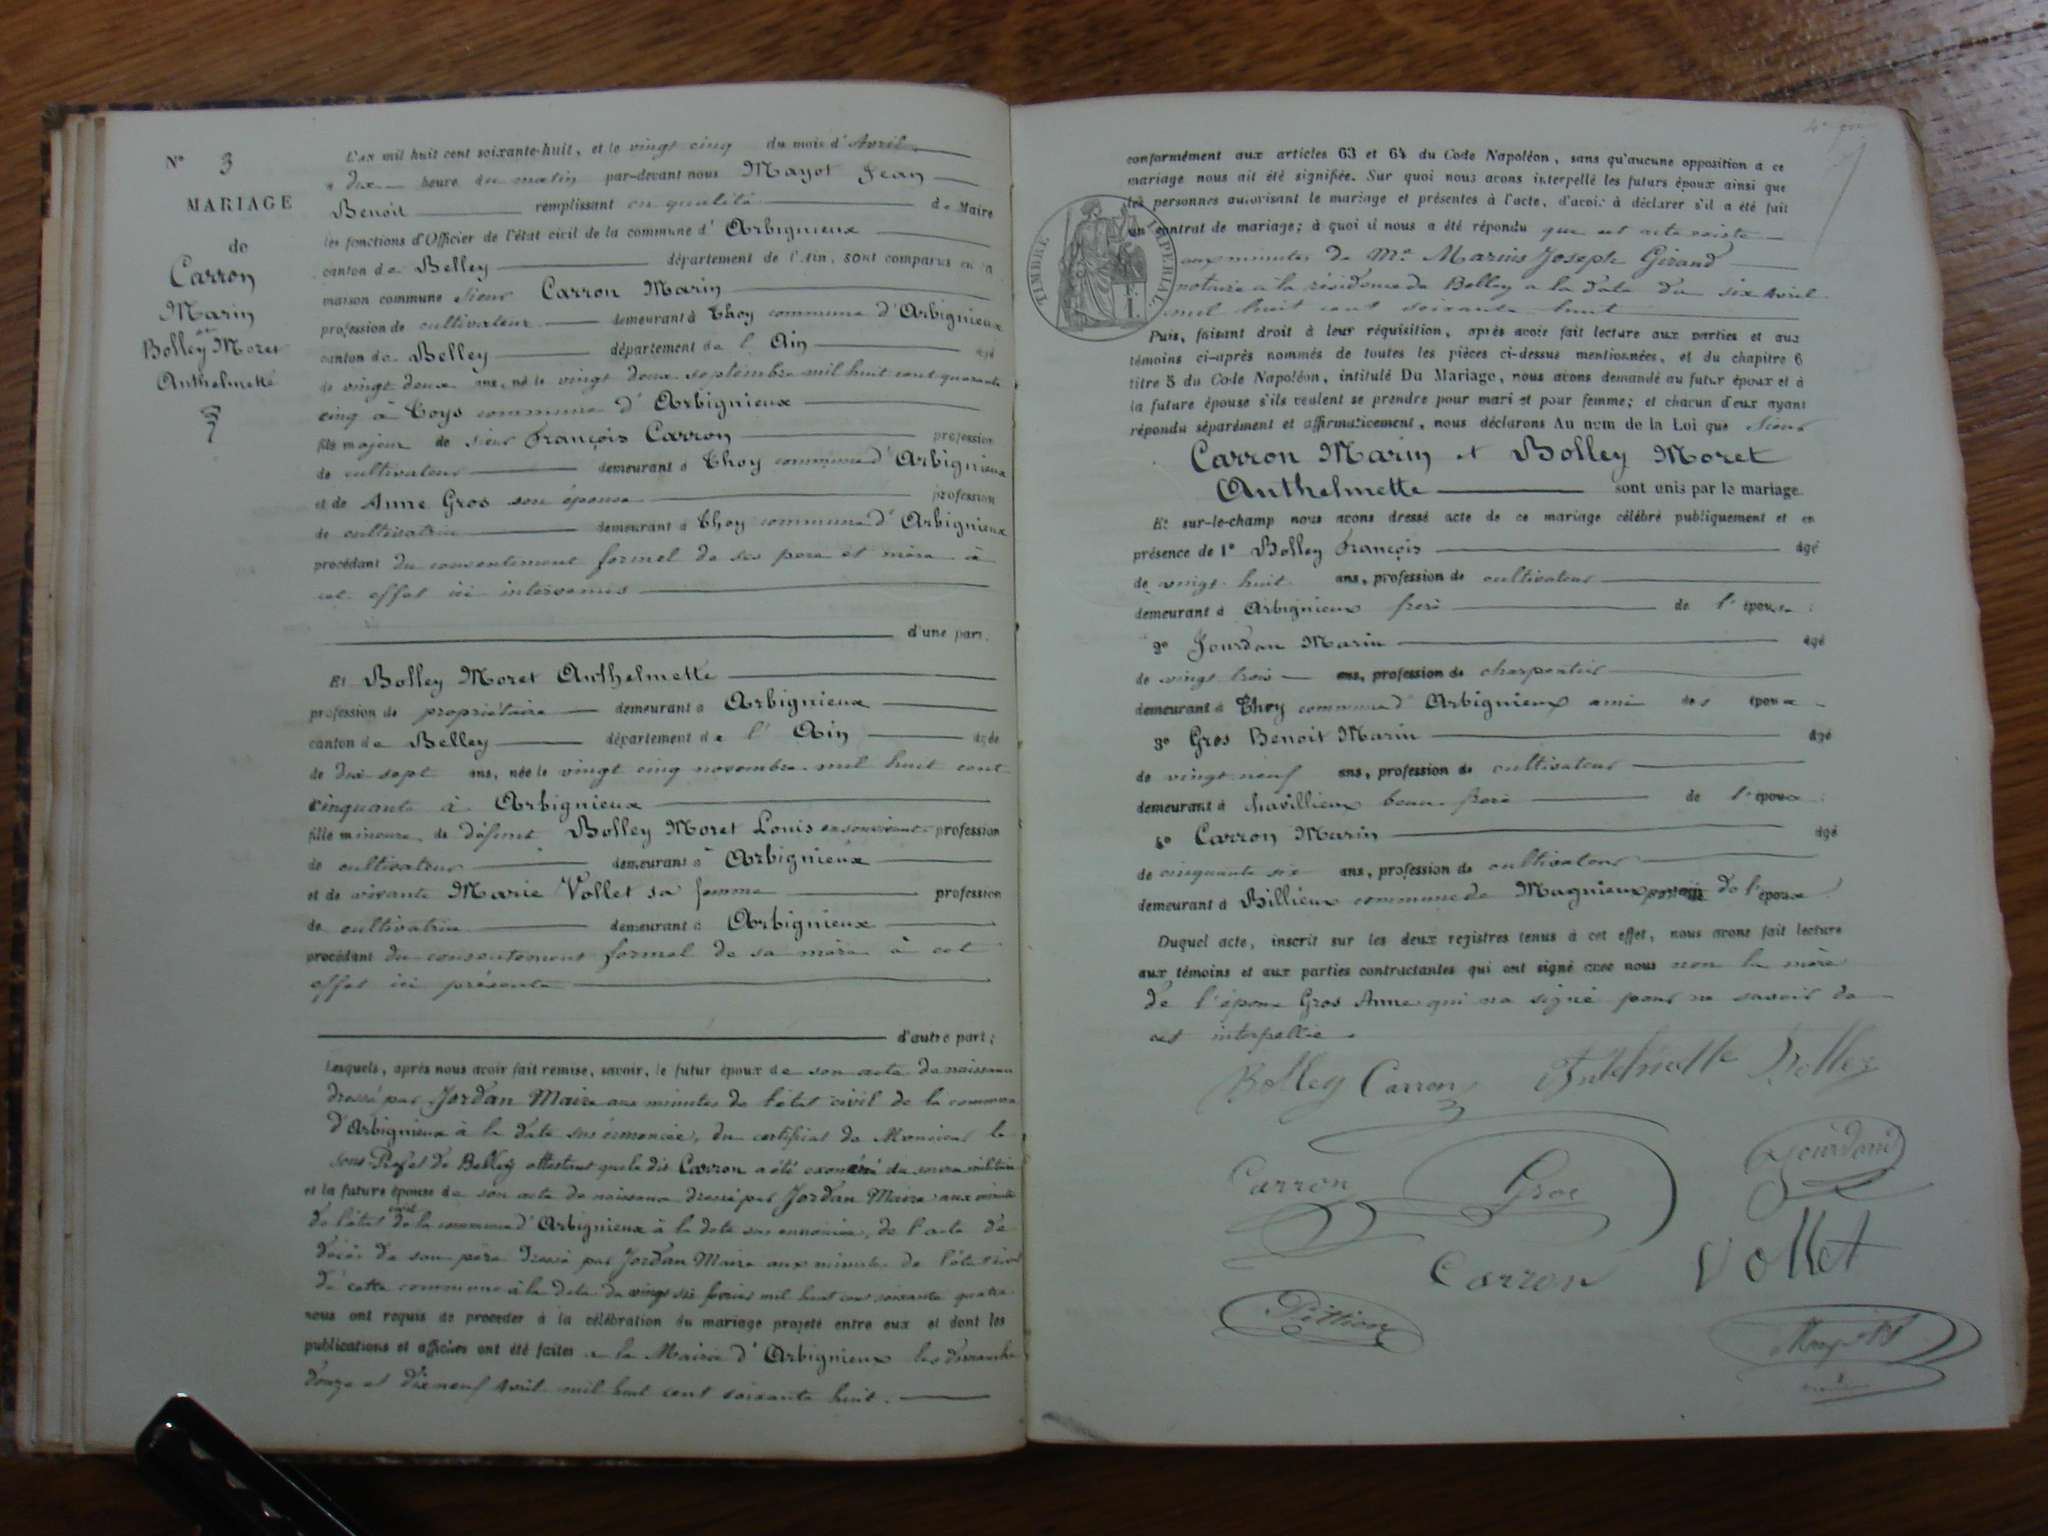 N° 3
MARIAGE
de
Carron
Marin
et
Bolley Moret
Anthelmette
L'an mil huit cent soixante-huit, et le vingt cinq du mois d'Avril
à dix heure du matin par-devant nous Mayot Jean
Benoit remplissant en qualité de Maire
les fonctions d'Officier de l'état civil de la commune d'Arbignieux
canton de Belley département de l'Ain, sont comparus en la
maison commune sieur Carron Marin
profession de cultivateur demeurant à Thoy commune d'Arbignieux
canton de Belley département de l'Ain âgé
de vingt deux ans, né le vingt deux septembre mil huit cent quarante
cinq à Toys commune d'Arbignieux
fils majeur de sieur François Carron profession
de cultivateur demeurant à Thoy commune d'Arbignieux
et de Anne Gros son épouse profession
de cultivatrice demeurant à Thoy commune d'Arbignieux
procédant du consentement formel de ses pere et mère à
cet effet ici intervenus
d'une part.
Et Bolley Moret Anthelmette
profession de propriétaire demeurant à Arbignieux
canton de Belley département de l'Ain âgée
de dix sept ans, née le vingt cinq novembre mil huit cent
cinquante à Arbignieux
fille mineure de défunt Bolley Moret Louis en son vivant profession
de cultivateur demeurant à Arbignieux
et de vivante Marie Vollet sa femme profession
de cultivatrice demeurant à Arbignieux
procédant du consentement formel de sa mère à cet
effet ici présente
d'autre part;
Lesquels, après nous avoir fait remise, savoir, le futur époux de son acte de naissance
dressé par Jordan Maire aux minutes de l'état civil de la commune
d'Arbignieux à la date sus énoncée, du certificat de Monsieur le
sous Préfet de Belley attestant que le dit Carron a été exonéré du service militaire
et la future épouse de son acte de naissance dressé par Jordan Maire aux minutes
de l'état civil de la commune d'Arbignieux à la date sus énoncée, de l'acte de
décès de son père dressé par Jordan Maire aux minutes de l'état civil
de cette commune à la date du vingt six février mil huit cent soixante quatre
nous ont requis de procéder à la célébration du mariage projeté entre eux et dont les
publications et affiches ont été faites à la Mairie d'Arbignieux les dimanche
douze et dix neuf Avril mil huit cent soixante huit.
conformément aux articles 63 et 64 du Code Napoléon, sans qu'aucune opposition à ce
mariage nous ait été signifiée. Sur quoi nous avons interpellé les futurs époux ainsi que
les personnes autorisant le mariage et présentes à l'acte, d'avoir à déclarer s'il a été fait
un contrat de mariage; à quoi il nous a été répondu que cet acte existe
aux minutes de Me Marius Joseph Girand
notaire à la résidence de Belley à la date du six Avril
mil huit cent soixante huit
TIMBRE IMPERIAL
Puis, faisant droit à leur réquisition, après avoir fait lecture aux parties et aux
témoins ci-après nommés de toutes les pièces ci-dessus mentionnées, et du chapitre 6
titre 5 du Code Napoléon, intitulé Du Mariage, nous avons demandé au futur époux et à
la future épouse s'ils veulent se prendre pour mari et pour femme; et chacun d'eux ayant
répondu séparément et affirmativement, nous déclarons Au nom de la Loi que sieur
Carron Marin et Bolley Moret
Anthelmette sont unis par le mariage.
Et sur-le-champ nous avons dressé acte de ce mariage célébré publiquement et en
présence de 1° Bolley François âgé
de vingt huit ans, profession de cultivateur
demeurant à Arbignieux frere de l'épouse
2° Jourdan Marin âgé
de vingt trois ans, profession de charpentier
demeurant à Thoy commune d'Arbignieux ami des époux
3° Gros Benoit Marin âgé
de vingt neuf ans, profession de cultivateur
demeurant à Chavillieux beau frere de l'épouse
4° Carron Marin âgé
de cinquante six ans, profession de cultivateur
demeurant à Billieux commune de Magnieux de l'époux
Duquel acte, inscrit sur les deux registres tenus à cet effet, nous avons fait lecture
aux témoins et aux parties contractantes qui ont signé avec nous non la mère
de l'époux Gros Anne qui n'a signé pour ne savoir de
ce interpellée.
Bolley Carron Anthelmette Bolley
Carron Gros Jourdan
Carron Vollet
Pittion Mayot